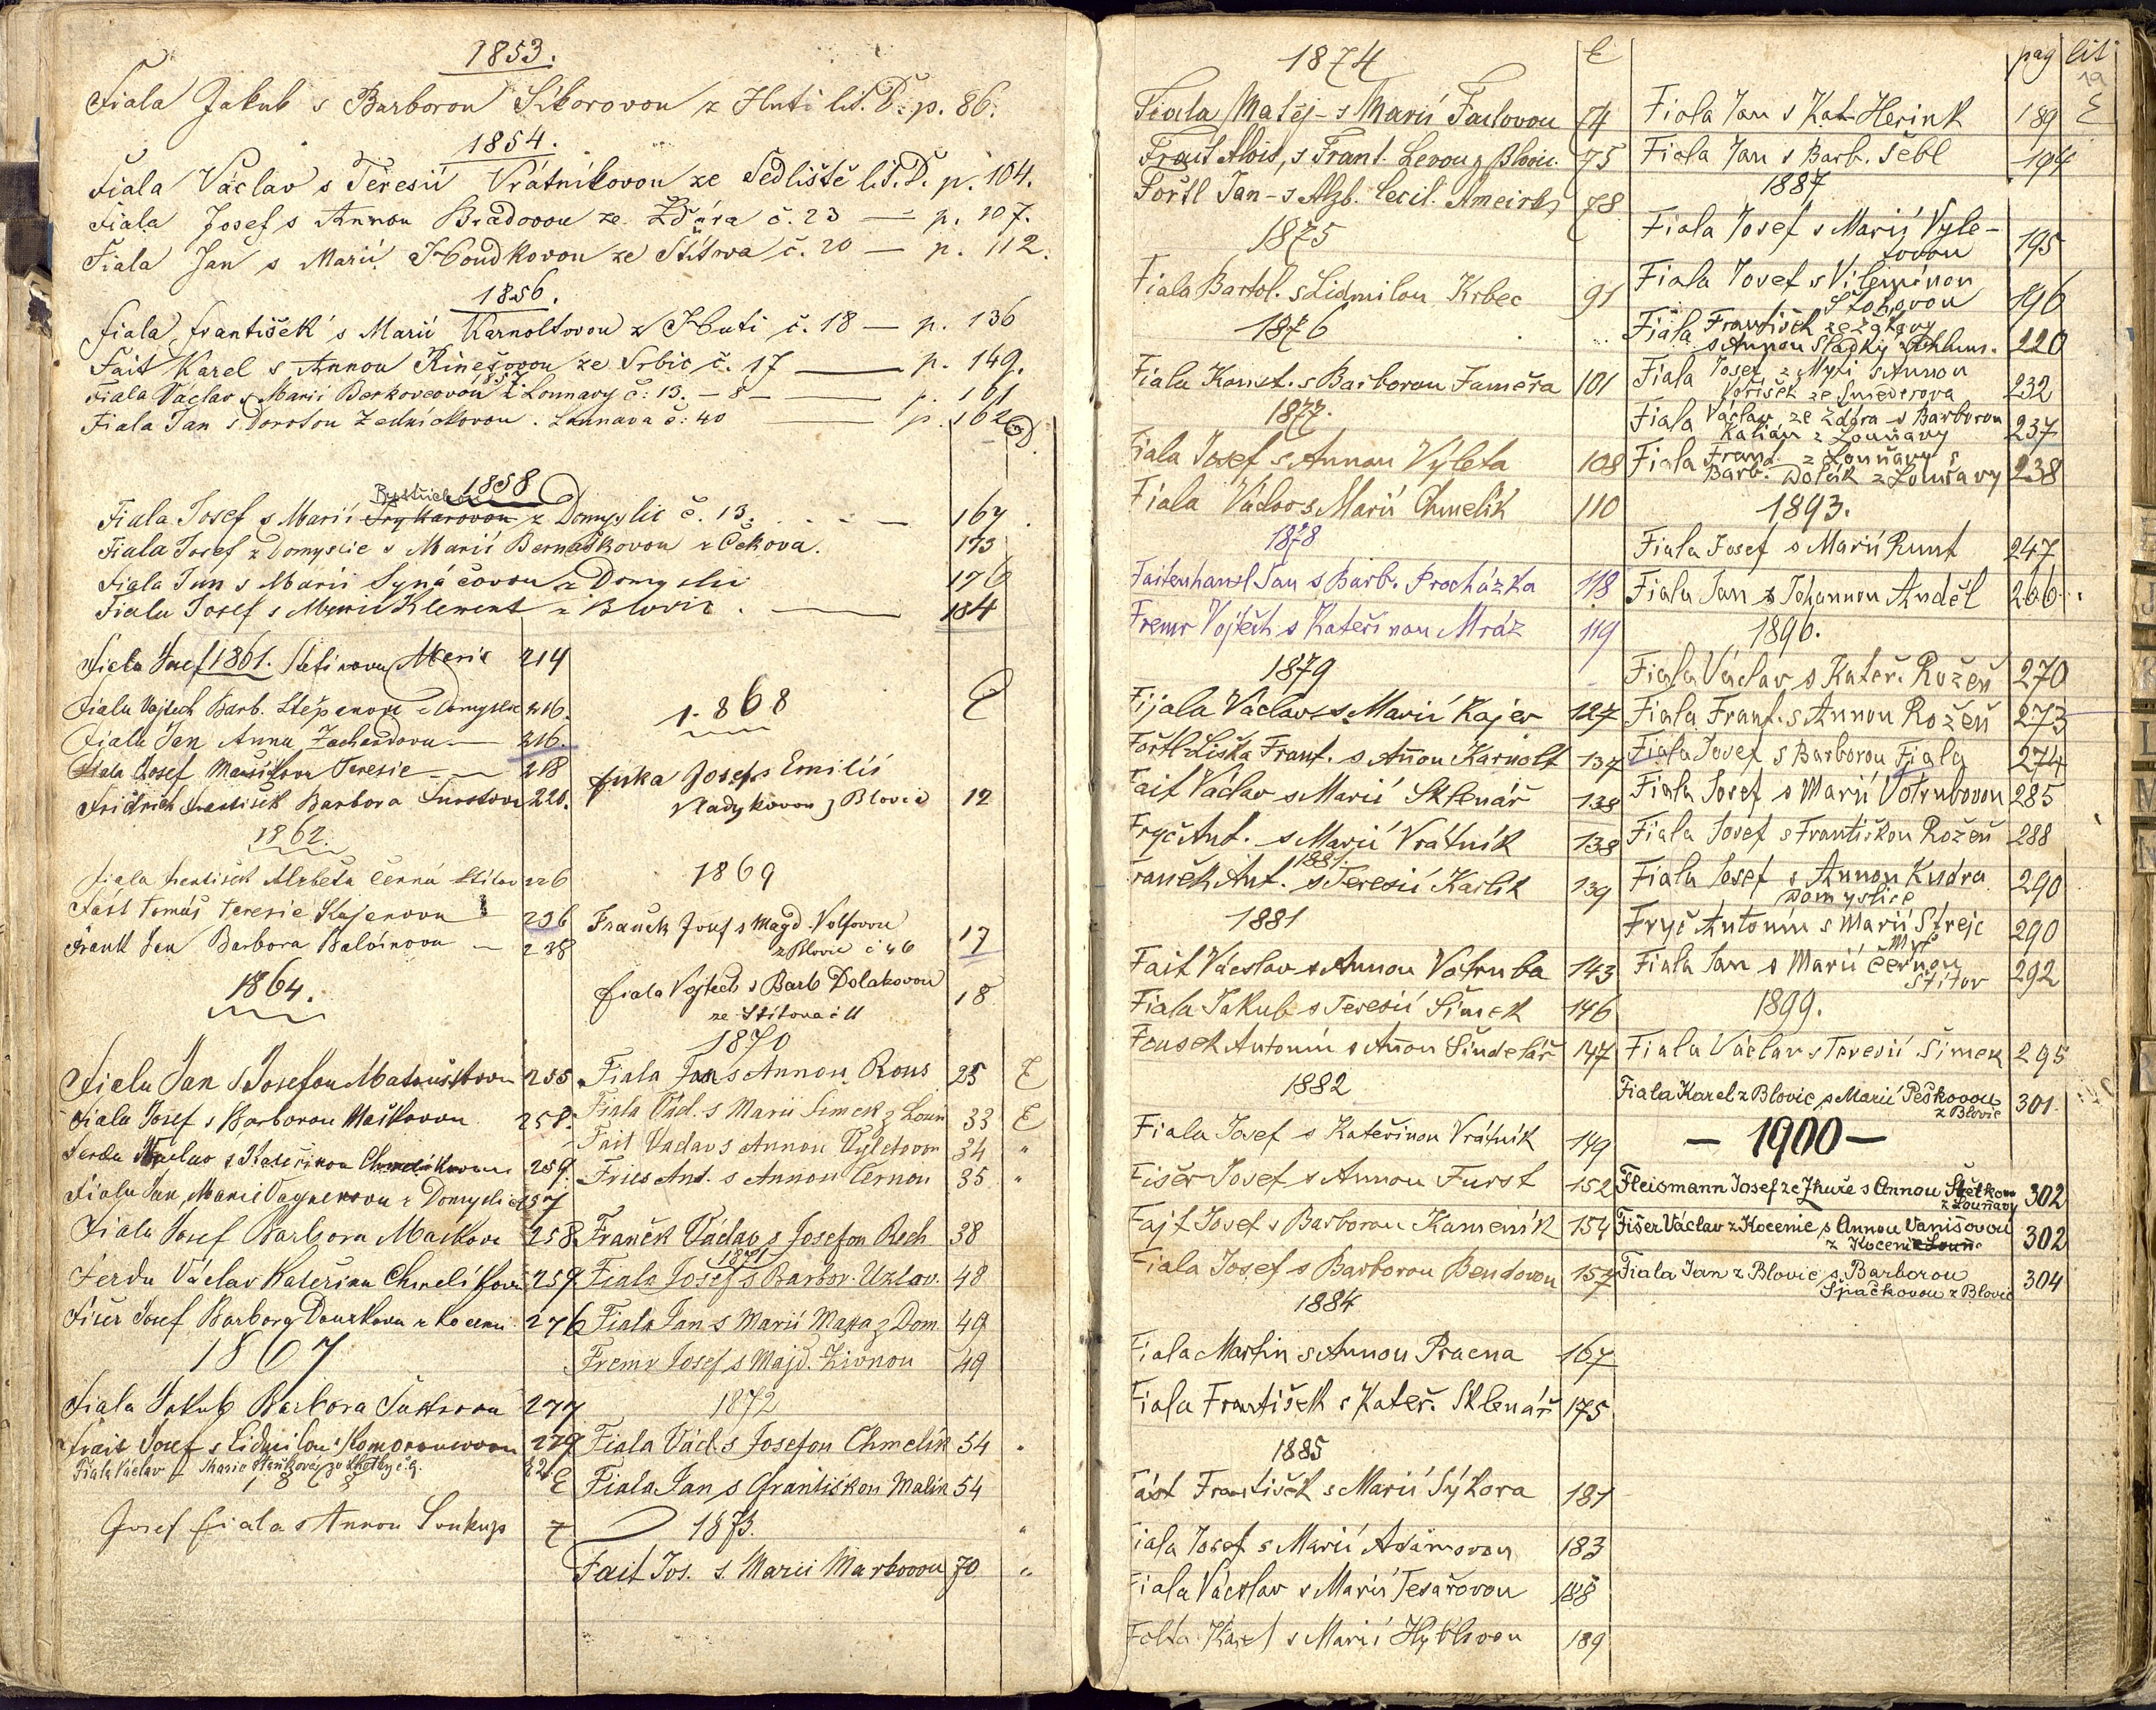 1853.
Fiala Jakub s Barborou Sikorovou z Huti lit. D. p. 86.
1854.
Fiala Václav s Teresií Vrátníkovou ze Sedliště lit. D. p. 104.
Fiala Josef s Annou Bradovou ze Ždára č. 23 — p. 107.
Fiala Jan s Marií Houdkovou ze Štítova č. 20 — p. 112.
1856.
Fiala František s Marií Karnoltovou z Huti č. 18 — p. 136
Fait Karel s Annou Rinešovou ze Srbic č. 17 — p. 149.
1857
Fiala Václav s Marií Berkovcovou z Lounavy č: 13. — 8 — p. 161
Fiala Jan s Dorotou Zedníčkovou. Lounava č: 40 — p. 162 D.
1858
Bystřickou
Fiala Josef s Marií z Domyslic č. 13. — 167.
Fiala Josef z Domyslic s Marií Bernáškovou z Čekova. 173
Fiala Jan s Marií Synáčovou z Domyslic 176
Fiala Josef s Marií Klement z Blovic. — 184
Fiala Josef 1861. Marie 214
Fiala Vojtěch Barb. Štěpanova z Domyslic 216.
Fiala Jan Anna — 216.
Fiala Josef Teresie — 218
Fridrich František Barbora 220.
1862.
Fiala František Alžběta Černá Štítov 226
Fást Tomáš Teresie Kajerovou 236
Frank Jan Barbora — 238
1864.
Fiala Jan s Josefou Matouškovou 255
Fiala Josef s Barborou Maškovou 258.
Ferda Václav s Kateřinou Chmelíkovou 259.
Fiala Jan, Marie Vagnerovou z Domyslic 257
Fiala Josef Barbora Maškova 258
Ferda Václav Kateřina Chmelíkova 259.
Fišer Josef Barbora z Kocenic 276
1867
Fiala Jakub Barbora 277
Frait Josef s Lidmilou 279
Fiala Václav s Marie
Josef Fiala s Annou Soukup 7
1868 E
Fiska Josef s Emilií
Vladykovou z Blovic 12
1869
Franěk Josef s Magd. Volfovou
z Blovic č 46 17
Fiala Vojtěch s Barb Dolakovou
ze Štítova č 11 18
1870
Fiala Jan s Annou Rous 25 E
Fiala Vác. s Marií Šimek z Loun 33 E
Fait Václav s Annou Vyletovou 34 "
Fries Ant. s Annou Černou 35 "
Franěk Václav s Josefou Rech 38
1871
Fiala Josef s Barbor. Uzlov. 48
Fiala Jan s Marií z Dom. 49
Fremr Josef s Majd. Živnou 49
1872
Fiala Vác. s Josefou Chmelík 54 "
Fiala Jan s Františkou Malík 54
1873. "
Fait Jos. s Marií Markovou 70 "
1874 E
Fiala Matěj - s Marií Failovou 74
Frait Alois, s Frant. Levou z Blovic. 75
Fořtl Jan - s Alzb. Cecil. 78
1875
Fiala Bartol. s Lidmilou Krbec 91
1876
Fiala Konst. s Barborou Jaměra 101
1877.
Fiala Josef s Annou Výleta 108
Fiala Václav s Marií Chmelík 110
1878
Faitenhansl Jan s Barb. Procházka 118
Fremr Vojtěch s Kateřinou Mráz 119
1879
Fijala Václav s Marií Kajer 127
Fořtl Liška Frant. s Añou Karnolt 137
Fait Václav s Marií Sklenář 138
Fryč Ant. s Marií Vrátník 138
1881.
Franěk Ant. s Teresií Karlík 139
1881
Fait Václav s Annou Votruba 143
Fiala Jakub s Teresií Šimek 146
Fousek Antonín s Añou Šindelář 147
1882
Fiala Josef s Kateřinou Vrátník 149
Fišer Josef s Annou Furst 152
Fajt Josef s Barborou Kameník 154
Fiala Josef s Barborou Bendovou 157
1884
Fiala Martin s Annou Pracna 167
Fiala František s Kateř. Sklenář 175
1885
Fást František s Marií Sýkora 181
Fiala Josef s Marií Adamovou 183
Fiala Václav s Marií Tesařovou 188
Folta Karel s Marií 189
pag lit
19
Fiala Jan s Kat Herink 189 E
Fiala Jan s Barb. Šebl 194
1887
Fiala Josef s Marií Vyle-
tovou 195
Fiala Josef s Vilemínou
196
Fiala František ze Zdkavy
s Annou Sladký 220
Fiala Josef z Mytí s Annou
Kořišek ze Směderova 232
Fiala Václav ze Zdára s Barborou
Kalián z Louňavy 237
Fiala Frant. z Louňavy s
Barb. Dolák z Louňavy 238
1893.
Fiala Josef s Marií Runt 247
Fiala Jan s Johannou Anděl 266
1896.
Fiala Václav s Kateř. Rožeň 270
Fiala Frant. s Annou Rožeň 273
Fiala Josef s Barborou Fiala 274
Fiala Josef s Marií Votrubovou 285
Fiala Josef s Františkou Rožeň 288
Fiala Josef s Annou Kudra
Domyslice 290
Fryč Antonín s Marií Strejc 290
Fiala Jan s Marií Černou
Štítov 292
1899.
Fiala Václav s Teresií Šimek 295
Fiala Karel z Blovic s Marií Peškovou
z Blovic 301
— 1900 —
Fleismann Josef ze Zhuře s Annou Štětkou
z Louňavy 302
Fišer Václav z Kocenic s Annou Vanišovou
z Kocenic 302
Fiala Jan z Blovic s Barborou
Špačkovou z Blovic 304